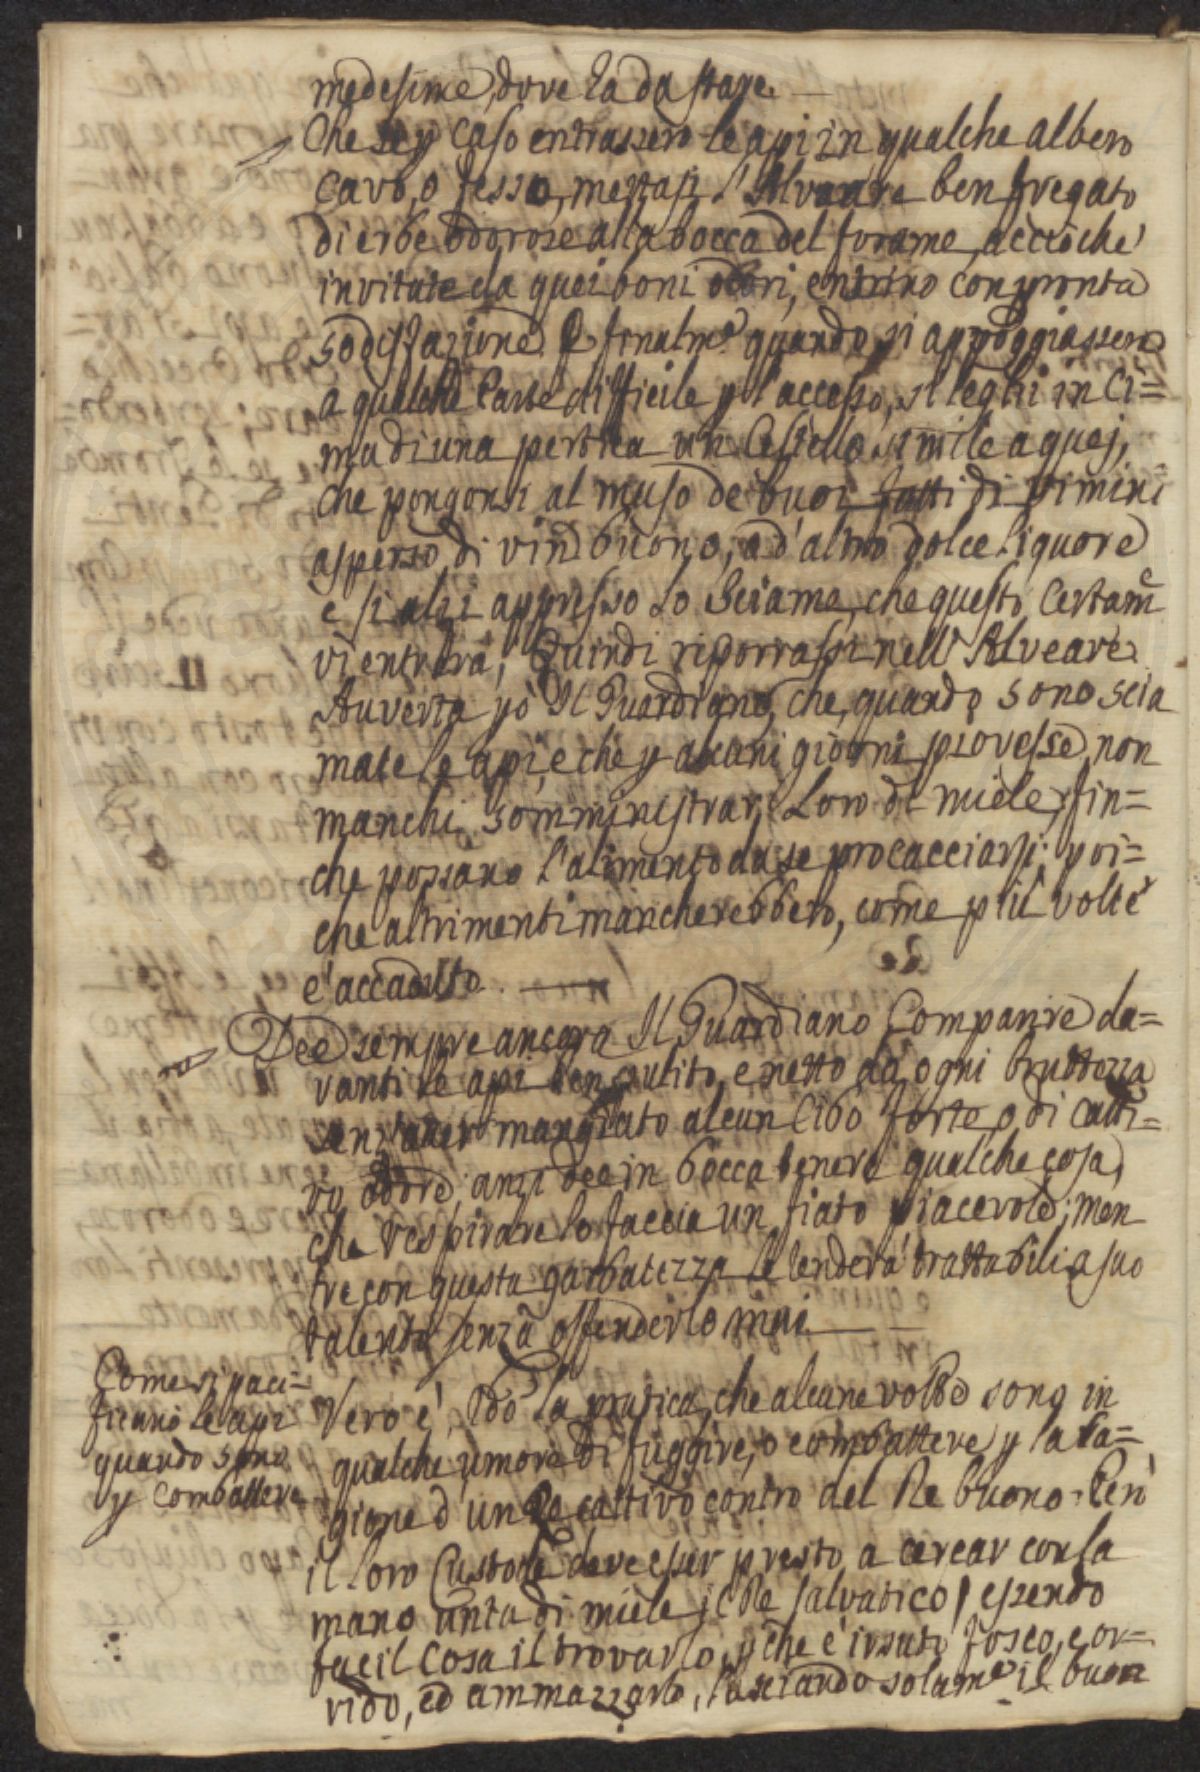 medesime, dove ha da stare.
Che se p caso entrassero le api in qualche albero
cavo, o fesso, mettasi l'Alveare ben fregato
di erbe odorose alla bocca del forame, acciòche
invitate da quei boni odori, entrino con pronta
sodisfazione. E finalmᵉ quando si appoggiassero
a qualche parte difficile p l'accesso, si leghi in Ci=
ma di una pertica un Cestello simile a quej,
che pongonsi al muso de buoi fatti di vimini
asperso di vin buono, o d'altro dolce liquore
e si alzi appresso lo Sciame, che questo Certamᵉ
vi entrerà; Quindi riporrassi nell'Alveare.
Auverta pò Il Guardiano, che quando sono scia
mate le api, e che p alcuni giorni piovesse, non
manchi somministrar Loro di miele, fin=
che possano l'alimento da se procacciarsi; poi=
che altrimenti mancherebbero, come più volte
e' accaduto.
Dee sempre ancora Il Guardiano Comparire da=
vanti le api ben pulito, e netto da ogni bruttezza
senz'aver mangiato alcun Cibo forte o di catti=
vo odore, anzi dee in bocca tenere qualche cosa,
che respirare lo faccia un fiato piacevole; men
tre con questa garbatezza le renderà trattabili a suo
talento senza offenderlo mai.
Come si paci=
ficano le api
quando sono
p combattere
Vero è, pò la pratica, che alcune volte sono in
qualche umore di fuggire, o combattere p la ca=
gione d'un Re cattivo contro del Re buono. Però
il loro Custode deve esser presto a cercar con la
mano unta di miele il Re salvatico, essendo
facil cosa il trovarlo, pche è irsuto fosco, e or=
rido, ed ammazzarlo, lasciando solamᵉ il buon